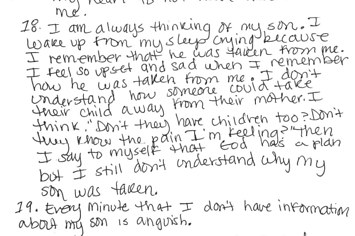 me.
18. I am always thinking of my son. I
wake up from my sleep crying because
I remember that he was taken from me.
I feel so upset and sad when I remember
how he was taken from me. I don't
understand how someone could take
their child away from their mother. I
think. "Don't they have children too? Don't
they know the pain I'm feeling?" then
I say to myself that God has a plan
but I still don't understand why my
son was taken.
19. Every minute that I don't have information
about my son is anguish.